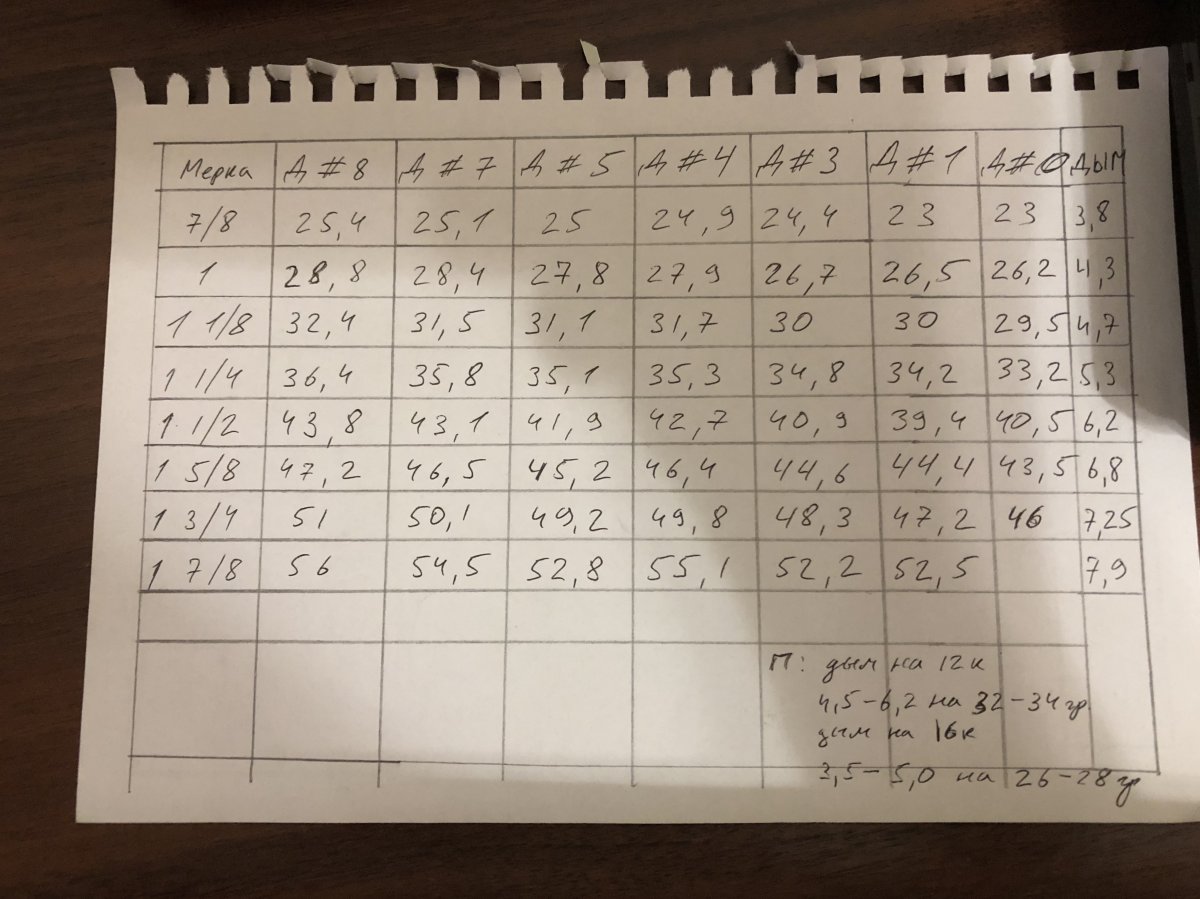 Мерка Д#8 Д#7 Д#5 Д#4 Д#3 Д#1 Д#0 ДЫМ
7/8 25,4 25,1 25 24,9 24,4 23 23 3,8
1 28,8 28,4 27,8 27,9 26,7 26,5 26,2 4,3
1 1/8 32,4 31,5 31,1 31,7 30 30 29,5 4,7
1 1/4 36,4 35,8 35,1 35,3 34,8 34,2 33,2 5,3
1 1/2 43,8 43,1 41,9 42,7 40,9 39,4 40,5 6,2
1 5/8 47,2 46,5 45,2 46,4 44,6 44,4 43,5 6,8
1 3/4 51 50,1 49,2 49,8 48,3 47,2 46 7,25
1 7/8 56 54,5 52,8 55,1 52,2 52,5 7,9
П: дым на 12к
4,5-6,2 на 32-34 гр
дым на 16к
3,5-5,0 на 26-28 гр